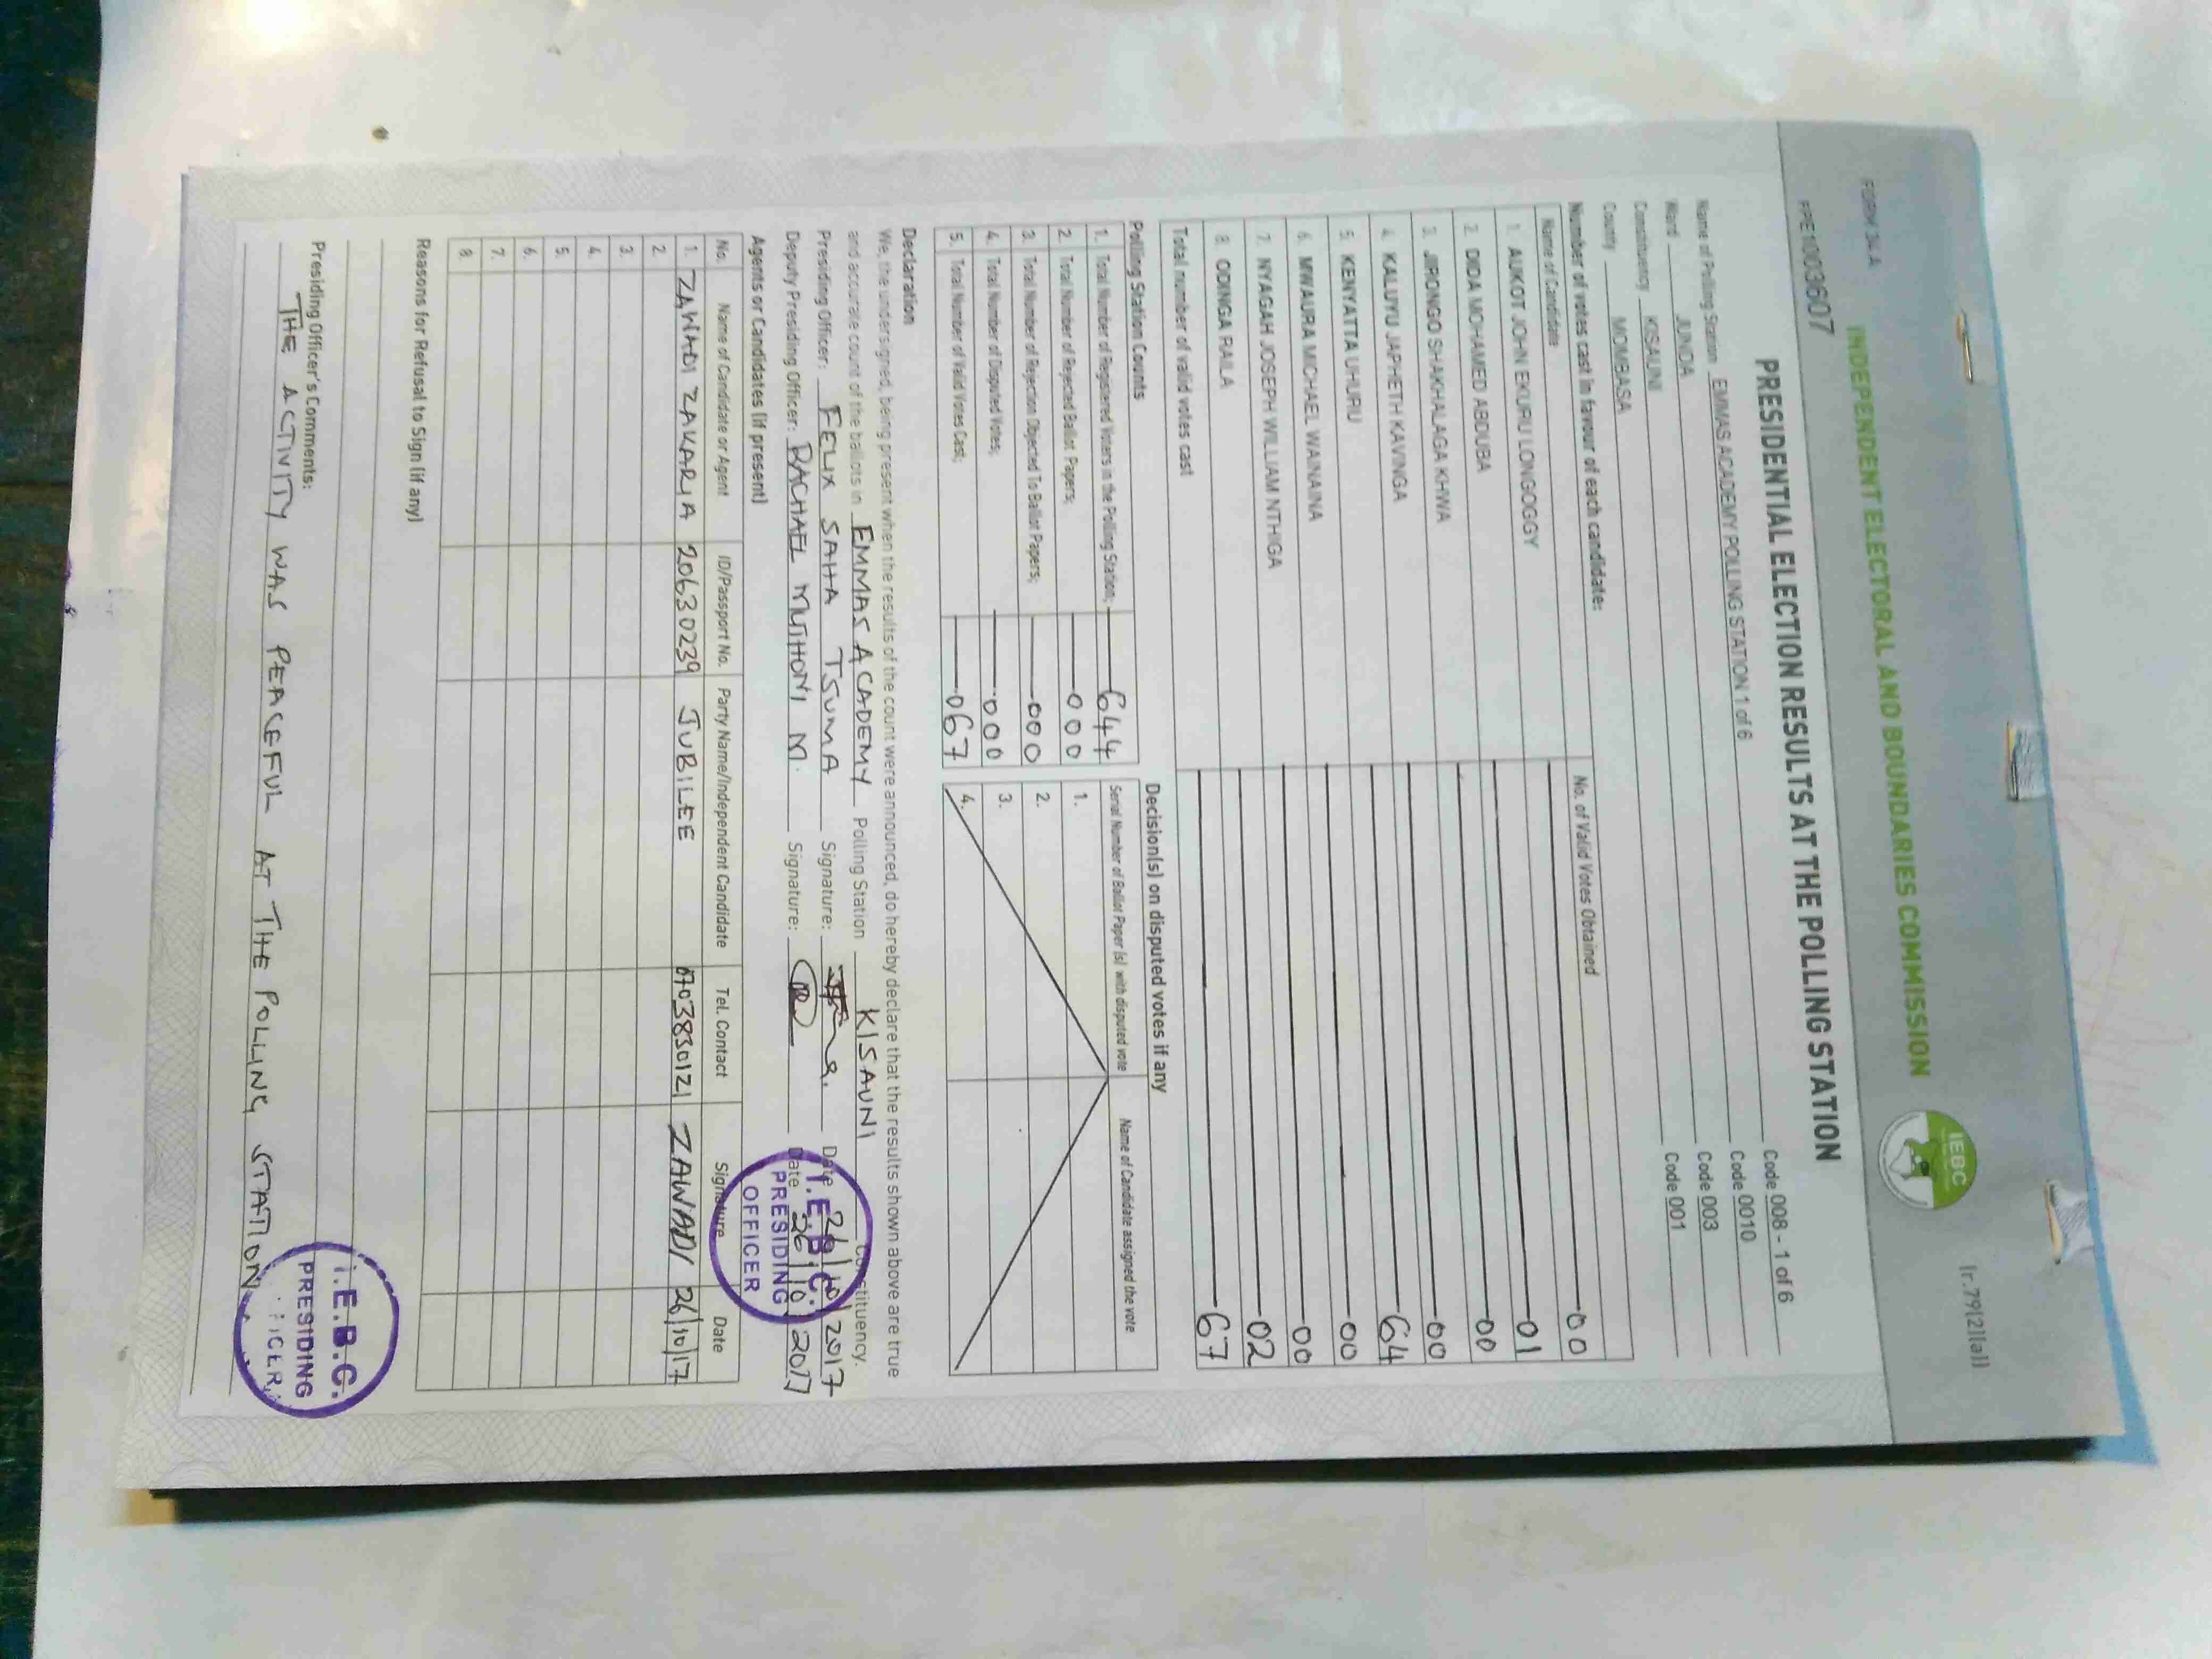 FORM 34A
[r.79(2)(a)]
INDEPENDENT ELECTORAL AND BOUNDARIES COMMISSION
IEBC
PPE1003607
PRESIDENTIAL ELECTION RESULTS AT THE POLLING STATION
Name of Polling Station EMMAS ACADEMY POLLING STATION 1 of 6 Code 008 - 1 of 6
Ward JUNDA Code 0010
Constituency KISAUNI Code 003
County MOMBASA Code 001
Number of votes cast in favour of each candidate:
Name of Candidate No. of Valid Votes Obtained
1. AUKOT JOHN EKURU LONGOGGY 00
2. DIDA MOHAMED ABDUBA 01
3. JIRONGO SHAKHALAGA KHWA 00
4. KALUYU JAPHETH KAVINGA 00
5. KENYATTA UHURU 64
6. MWAURA MICHAEL WAINAINA 00
7. NYAGAH JOSEPH WILLIAM NTHIGA 00
8. ODINGA RAILA 02
Total number of valid votes cast 67
Polling Station Counts
1. Total Number of Registered Voters in the Polling Station; 644
2. Total Number of Rejected Ballot Papers; 000
3. Total Number of Rejection Objected To Ballot Papers; 000
4. Total Number of Disputed Votes; 000
5. Total Number of Valid Votes Cast; 067
Decision(s) on disputed votes if any
Serial Number of Ballot Paper (s) with disputed vote Name of Candidate assigned the vote
1.
2.
3.
4.
Declaration
We, the undersigned, being present when the results of the count were announced, do hereby declare that the results shown above are true
and accurate count of the ballots in EMMAS ACADEMY Polling Station KISAUNI Constituency.
Presiding Officer: FELIX SAHA TSUMA Signature: Date 26/10/2017
Deputy Presiding Officer: RACHAEL MUTHONI M. Signature: Date 26/10/2017
I.E.B.C.
PRESIDING
OFFICER
Agents or Candidates (if present)
No. Name of Candidate or Agent ID/Passport No. Party Name/Independent Candidate Tel. Contact Signature Date
1. ZAWADI ZAKARIA 20630239 JUBILEE 0703830121 ZAWADI 26/10/17
2.
3.
4.
5.
6.
7.
8.
Reasons for Refusal to Sign (if any)
Presiding Officer's Comments:
THE ACTIVITY WAS PEACEFUL AT THE POLLING STATION
I.E.B.C.
PRESIDING
OFFICER